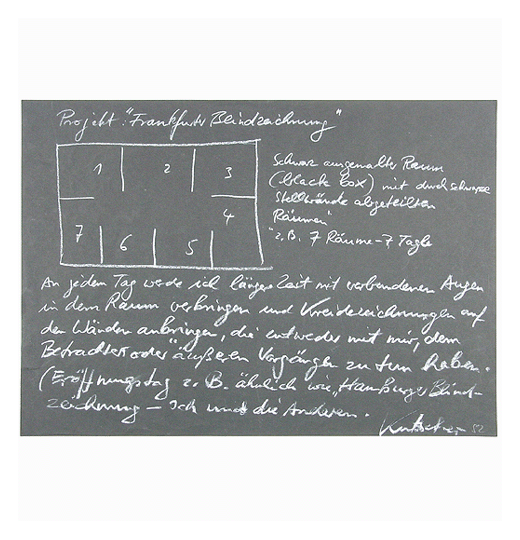 Projekt: "Frankfurter Blindzeichnung"
1 2 3
4
7 6 5
Schwarz ausgemalter Raum
(black box) mit durch schwarze
Stellwände abgeteilten
Räumen
z.B. 7 Räume – 7 Tage
An jedem Tag werde ich längere Zeit mit verbundenen Augen
in dem Raum verbringen und Kreidezeichnungen auf
den Wänden anbringen, die entweder mit mir, dem
Betrachter oder äußeren Vorgängen zu tun haben.
(Eröffnungstag z. B. ähnlich wie "Hamburger Blind-
zeichnung – Ich und die Anderen.